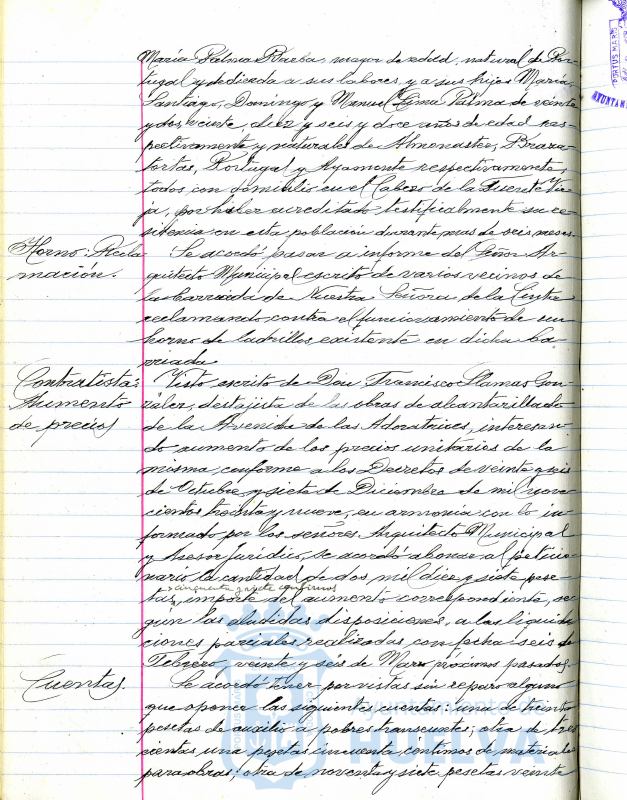 María Palma Barba, mayor de edad, natural de Por-
tugal y dedicada a sus labores, y a sus hijos María,
Santiago, Domingo y Manuel Lima Palma de veinte
y dos, veinte, diez y seis y doce años de edad res-
pectivamente y naturales de Almonaster,
Portugal y Ayamonte respectivamente,
todos con domicilio en el Cabezo de la Vie-
ja, por haber acreditado testificalmente su re-
sidencia en esta población durante mas de seis meses.
Horno: Recla-
mación.
Se acordó pasar a informe del Señor Ar-
quitecto Municipal escrito de varios vecinos de
la barriada de Nuestra Señora de la Cinta
reclamando contra el funcionamiento de un
horno de ladrillos existente en dicha ba-
rriada.
Contratista:
Aumento
de precios
Visto escrito de Don Francisco Llamas Gon-
zález, destajista de las obras de alcantarillado
de la Avenida de las Adoratrices, interesan-
do aumento de los precios unitarios de la
misma, conforme a los Decretos de veinte y seis
de Octubre y siete de Diciembre de mil nove-
cientos treinta y nueve, en armonía con lo in-
formado por los señores Arquitecto Municipal
y Asesor Jurídico, se acordó abonar al peticio-
nario la cantidad de dos mil diez y siete pese-
cincuenta y siete céntimos
tas, importe del aumento correspondiente, se-
gún las aludidas disposiciones, a las liquida-
ciones parciales realizadas con fecha seis de
Febrero, veinte y seis de Marzo próximos pasados.
Cuentas.
Se acordó tener por vistas sin reparo alguno
que oponer las siguientes cuentas: una de treinta
pesetas de auxilio a pobres transeuntes; otra de tres-
cientas una pesetas cincuenta centimos de materiales
para obras; otra de noventa y siete pesetas veinte
Ayuntamiento de
HUELVA